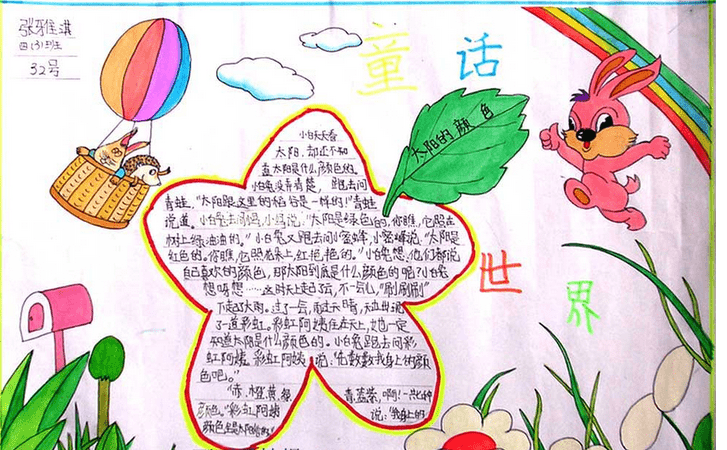 张雅淇
四(3)班
32号
童话
世界
太阳的颜色
小白兔天天看
太阳,却还不知
道太阳是什么颜色的。
小白兔没弄清楚,跑去问
青蛙,“太阳跟这里的稻谷是一样的!”青蛙
说道。小白兔去问小鸟,小鸟说:“太阳是绿色的,你瞧,它照在
树上绿油油的。”小白兔又跑去问小蜜蜂,小蜜蜂说:“太阳是
红色的。你瞧,它照在花上,红艳艳的。”小白兔想,他们都说
自己喜欢的颜色,那太阳到底是什么颜色的呢?小白兔
想呀想……这时天上起了云,不一会儿,“刷刷刷”
下起了大雨。过了一会,雨过天晴,天边出现
了一道彩虹。彩虹阿姨住在天上,她一定
知道太阳是什么颜色的。小白兔跑去问彩
虹阿姨。彩虹阿姨说:“先数数我身上的颜
色吧。”
“赤、橙、黄、绿、
青、蓝、紫,啊!一共七种
颜色。”彩虹阿姨
说:“我身上的
颜色全是太阳给的。”